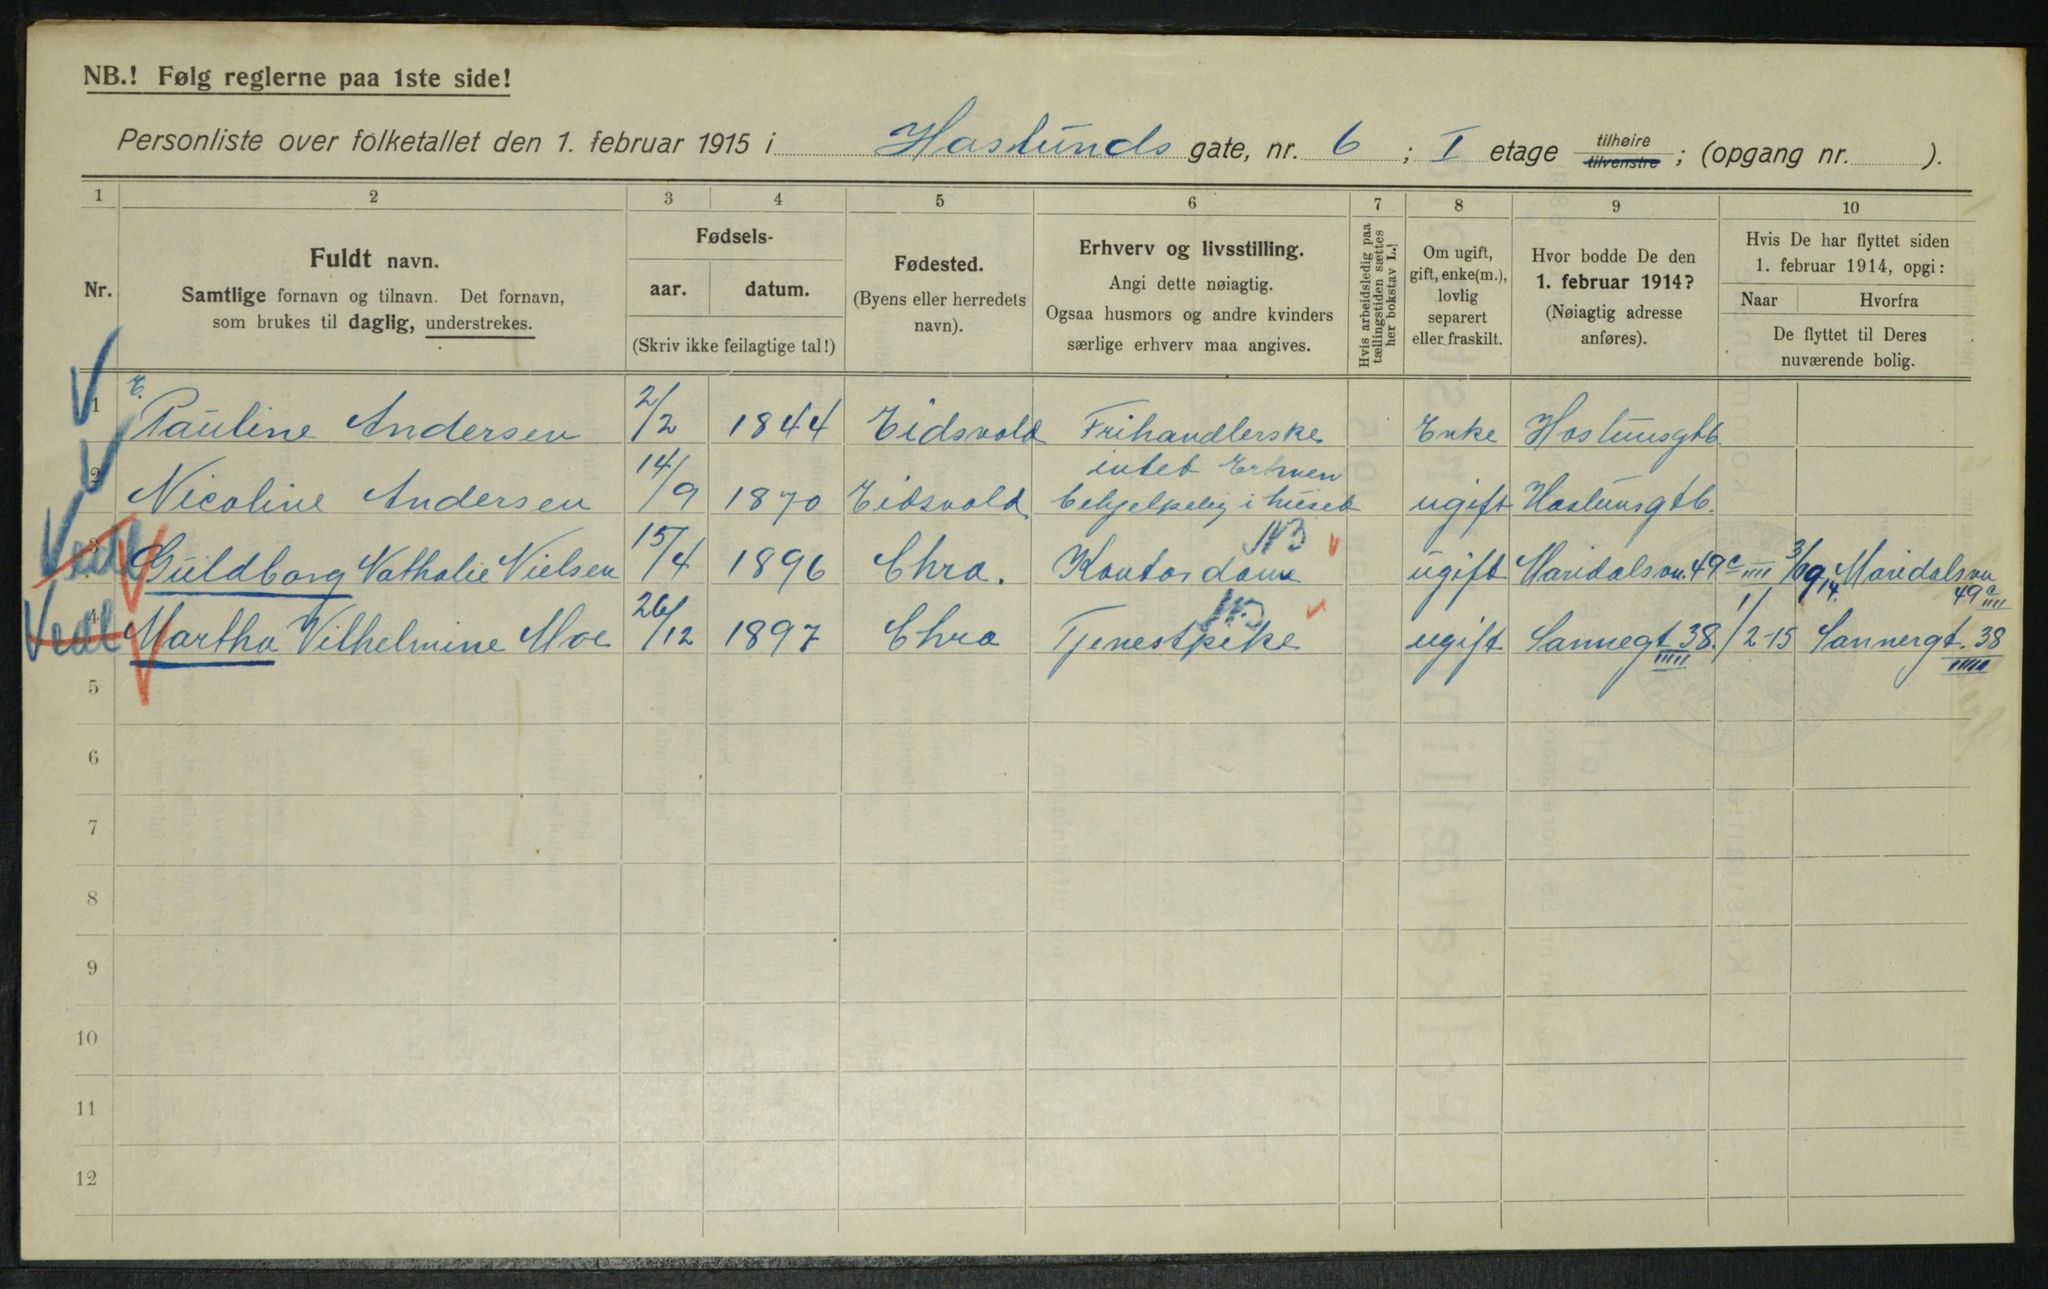 NB.! Følg reglerne paa 1ste side!
Personliste over folketallet den 1. februar 1915 i Haslunds gate, nr. 6 ; I etage tilhøire tilvenstre ; (opgang nr. ).
1 2 3 4 5 6 7 8 9 10
Nr.
Fuldt navn.
Samtlige fornavn og tilnavn. Det fornavn,
som brukes til daglig, understrekes.
Fødsels-
aar. datum.
(Skriv ikke feilagtige tal!)
Fødested.
(Byens eller herredets
navn).
Erhverv og livsstilling.
Angi dette nøiagtig.
Ogsaa husmors og andre kvinders
særlige erhverv maa angives.
Hvis arbeidsledig paa
tællingstiden sættes
her bokstav L.!
Om ugift,
gift, enke(m.),
lovlig
separert
eller fraskilt.
Hvor bodde De den
1. februar 1914?
(Nøiagtig adresse
anføres).
Hvis De har flyttet siden
1. februar 1914, opgi:
Naar Hvorfra
De flyttet til Deres
nuværende bolig.
E.
1 Pauline Andersen 2/2 1844 Eidsvold Frihandlerske Enke Haslunsgt 6.
intet Erhverv
2 Nicoline Andersen 14/9 1870 Eidsvold behjelpelig i huset ugift Haslunsgt 6.
NB
3 Guldborg Nathalie Nielsen 15/4 1896 Chra. Kontordame ugift Maridalsvn. 49c IIII 3/9 14. Maridalsvn
49c IIII
NB
4 Martha Vilhelmine Moe 26/12 1897 Chra Tjenestpike ugift Sannegt 38. IIIII 1/2-15 Sannergt. 38
IIIII
5
6
7
8
9
10
11
12